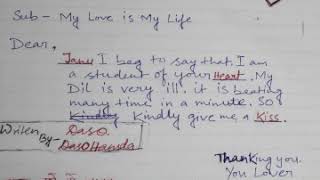 Sub - My Love is My Life
Dear,
Janu I beg to say that. I am
a student of your Heart. My
Dil is very ill. it is beating
many time in a minute. So
Kindly Kindly give me a Kiss.
Writen
By- Das O.
Das O Hansda
Thanking you.
You Lover